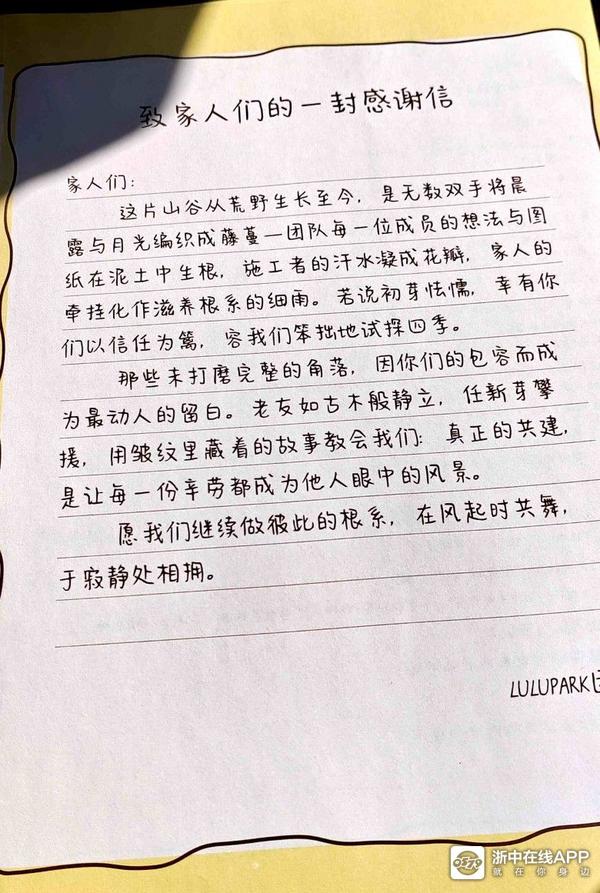 致家人们的一封感谢信
家人们:
这片山谷从荒野生长至今,是无数双手将晨
露与月光编织成藤蔓—团队每一位成员的想法与图
纸在泥土中生根,施工者的汗水凝成花瓣,家人的
牵挂化作滋养根系的细雨。若说初芽怯懦,幸有你
们以信任为篱,容我们笨拙地试探四季。
那些未打磨完整的角落,因你们的包容而成
为最动人的留白。老友如古木般静立,任新芽攀
援,用皱纹里藏着的故事教会我们:真正的共建,
是让每一份辛劳都成为他人眼中的风景。
愿我们继续做彼此的根系,在风起时共舞,
于寂静处相拥。
LULUPARK
浙中在线APP
就在你身边